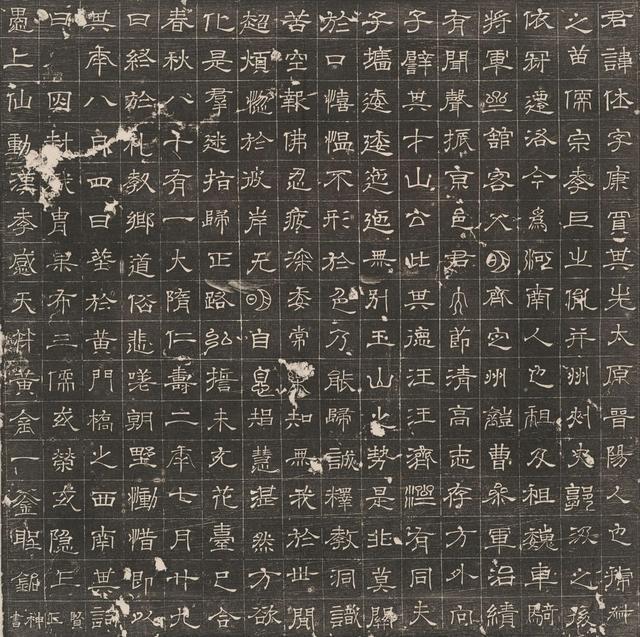 君諱休字康買其先太原晉陽人也
之苗儒宗泰巨之胤并州刺史郭汲之孫
依冠遷洛今爲河南人也祖及祖魏車騎
將軍幽館客父明齊定州離曹參軍治績
有聞聲振京邑君節清高志存方外向
子譬其才山公比其德汪汪濟濟有同夫
子墻逶逶迤迤無別玉山之勢是非莫關
於口憘慍不形於色乃能歸誠釋教洞識
苦空報佛忍疲深委常知無我於世間
超煩惚於彼岸无明自息慧湛然方欲
化是羣迷指歸正路弘誓未充花臺已合
春秋八十有一大隋仁壽二年七月廿九
日終於礼教鄉道俗悲嗟朝野慟惜即以
其年八月四日塟於黃門橋之西南其詞
曰因封胄果布三儒或榮或隱上賢
愚上仙動漢季感天村黃金一釜聖銘神書